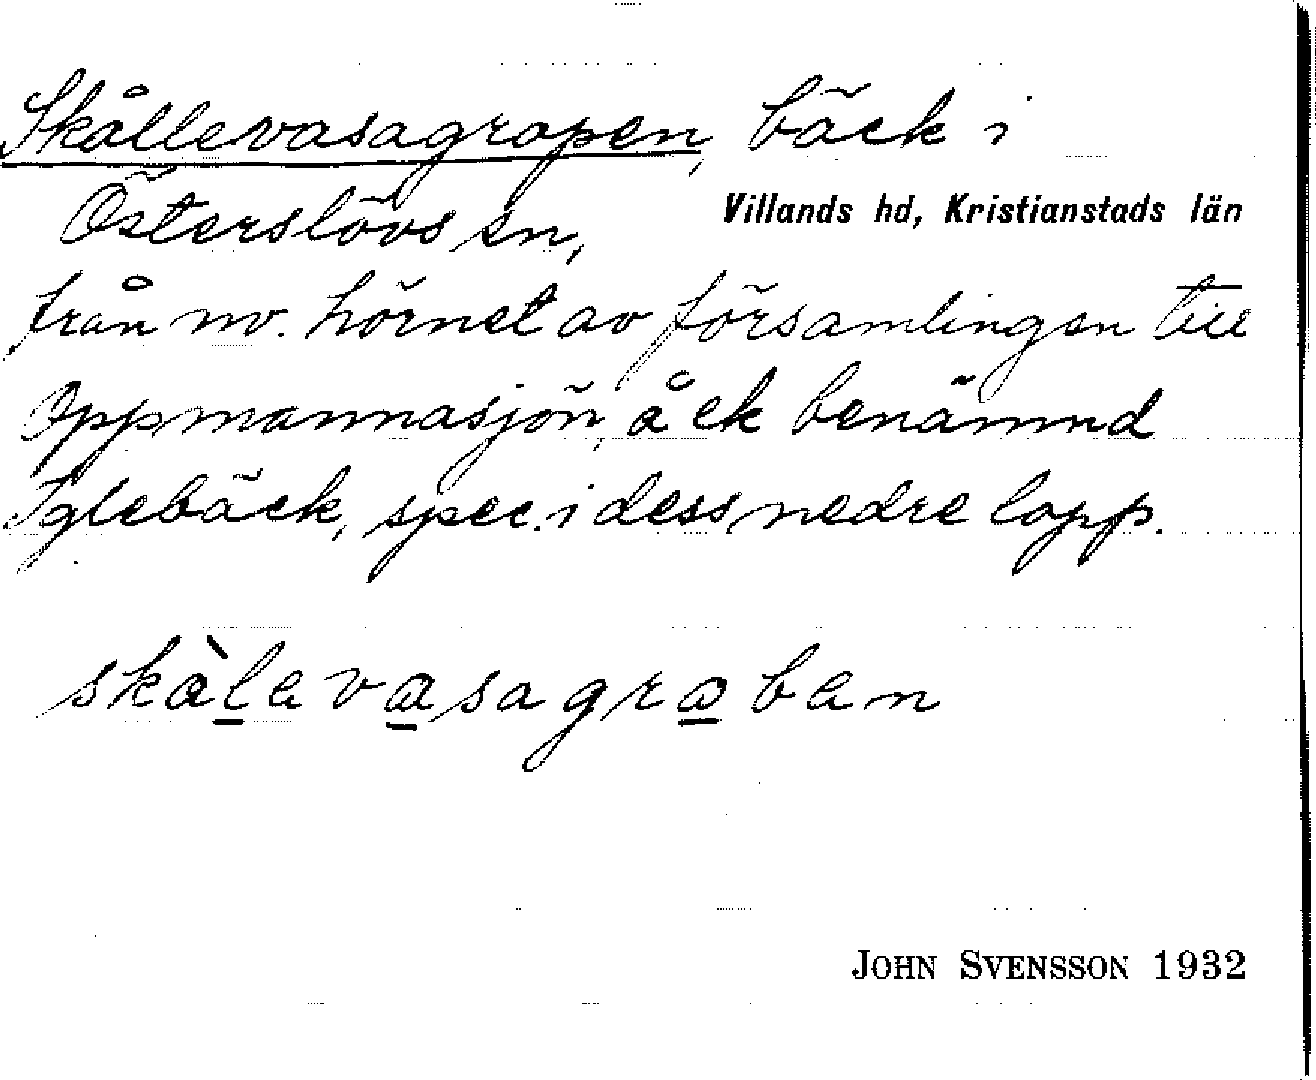 Skållevasagropen, bäck i
Österslövs sn,
Villands hd, Kristianstads län
från nv. hörnet av församlingen till
Oppmannasjön, äck benämnd
Iglebäck, spec. i dess nedre lopp.
skàlevasagraben
JOHN SVENSSON 1932